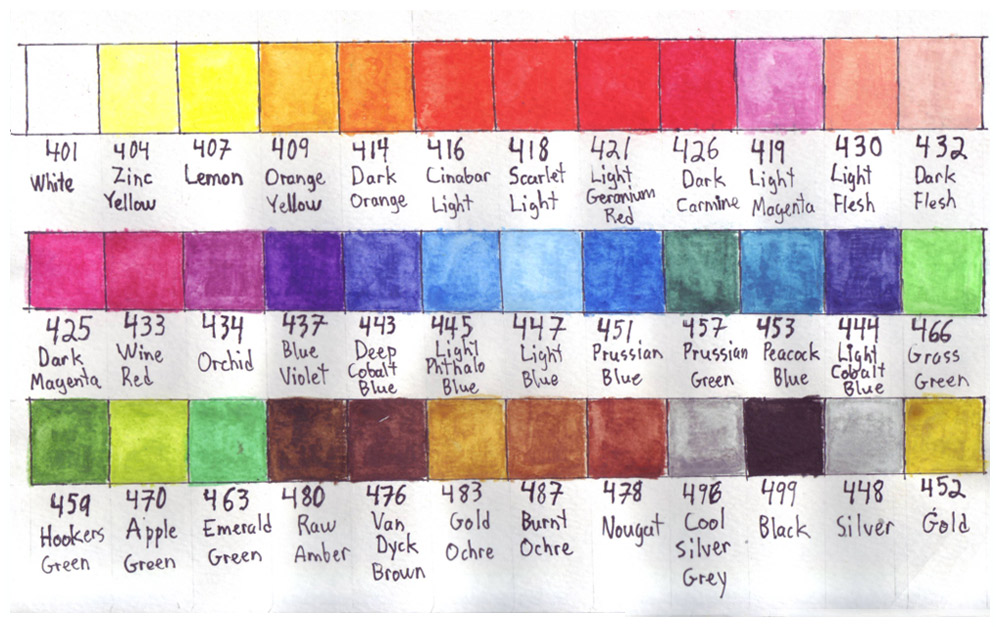 401 404 407 409 414 416 418 421 426 419 430 432
White Zinc Lemon Orange Dark Cinabar Scarlet Light Dark Light Light Dark
Yellow Yellow Orange Light Light Geranium Carmine Magenta Flesh Flesh
Red
425 433 434 437 443 445 447 451 457 453 444 466
Dark Wine Orchid Blue Deep Light Light Prussian Prussian Peacock Light Grass
Magenta Red Violet Cobalt Phthalo Blue Blue Green Blue Cobalt Green
Blue Blue Blue
459 470 463 480 476 483 487 478 496 499 448 452
Hookers Apple Emerald Raw Van Gold Burnt Nougat Cool Black Silver Gold
Green Green Green Amber Dyck Ochre Ochre Silver
Brown Grey